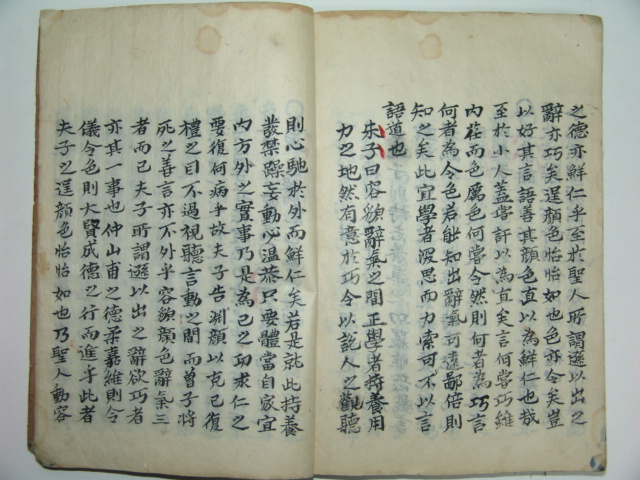 之德亦鮮仁乎至於聖人所謂遜以出之
辭亦巧矣逞顔色怡怡如也色亦令矣豈
以好其言語善其顔色直以為鮮仁也哉
至於小人蓋嘗訐以為直矣言何嘗巧維
內荏而色厲色何嘗令然則何者為巧言
何者為令色若能知出辭氣可遠鄙倍則
知之矣此宜學者深思而力索可不以言
語道也
朱子曰容貌辭氣之間正學者持養用
力之地然有意於巧令以說人之觀聽
則心馳於外而鮮仁矣若是就此持養
發禁躁妄動心溫恭只要體當自家宜
內方外之實事乃是為己之功求仁之
要復何病乎故夫子告淵顔以克己復
禮之目不過視聽言動之間而曾子將
死之善言亦不外乎容貌顔色辭氣三
者而已夫子所謂遜以出之辭欲巧者
亦其一事也仲山甫之德柔嘉維則令
儀令色則大賢成德之行而進乎此者
夫子之逞顔色怡怡如也乃聖人動容